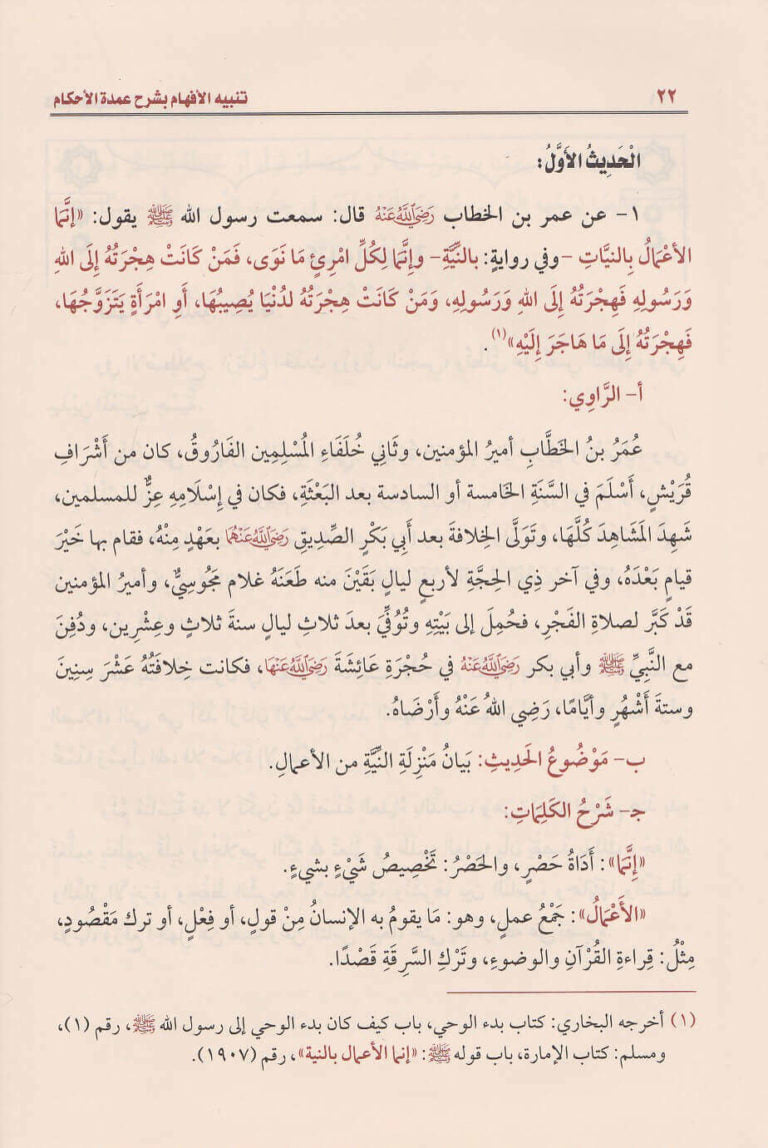 ٢٢ تنبيه الأفهام بشرح عمدة الأحكام
الْحَدِيثُ الأَوَّلُ:
١- عن عمر بن الخطاب رَضِيَ اللَّهُ عَنْهُ قال: سمعت رسول الله ﷺ يقول: «إِنَّمَا
الأَعْمَالُ بِالنيَّاتِ -وفي روايةٍ: بالنِّيَّةِ- وإِنَّمَا لِكُلِّ امْرِئٍ مَا نَوَى، فَمَنْ كَانَتْ هِجْرَتُهُ إِلَى اللهِ
وَرَسُولِهِ فَهِجْرَتُهُ إِلَى اللهِ وَرَسُولِهِ، وَمَنْ كَانَتْ هِجْرَتُهُ لدُنْيَا يُصِيبُهَا، أَوِ امْرَأَةٍ يَتَزَوَّجُهَا،
فَهِجْرَتُهُ إِلَى مَا هَاجَرَ إِلَيْهِ»(١).
أ- الرَّاوِي:
عُمَرُ بنُ الخَطَّابِ أميرُ المؤمنين، وثَاني خُلَفَاءِ المُسْلِمِين الفَارُوقُ، كان من أَشْرَافِ
قُرَيْشٍ، أَسْلَمَ في السَّنَةِ الخَامسة أو السادسة بعد البَعْثَةِ، فكان في إِسْلَامِهِ عِزٌّ للمسلمين،
شَهِدَ المَشَاهِدَ كُلَّهَا، وتَوَلَّى الخِلافةَ بعد أَبِي بَكْرٍ الصِّدِيقِ رَضِيَ اللَّهُ عَنْهُمَا بعَهْدٍ مِنْهُ، فقام بها خَيْرَ
قيامٍ بَعْدَهُ، وفي آخر ذِي الحِجَّةِ لأربعِ ليالٍ بَقَيْنَ منه طَعَنَهُ غلام مَجُوسِيٌّ، وأميرُ المؤمنين
قَدْ كَبَّر لصلاةِ الفَجْرِ، فحُمِلَ إلى بَيْتِهِ وتُوُفِّيَ بعدَ ثلاثِ ليالٍ سنةَ ثلاثٍ وعِشْرِين، ودُفِنَ
مع النَّبِيِّ ﷺ وأبي بكر رَضِيَ اللَّهُ عَنْهُ في حُجْرَةِ عَائِشَةَ رَضِيَ اللَّهُ عَنْهَا، فكانت خِلافَتُهُ عَشْرَ سِنِينَ
وستةَ أَشْهُرٍ وأيَّامًا، رَضِي اللهُ عَنْهُ وأَرْضَاهُ.
ب- مَوْضُوعُ الحَدِيثِ: بَيَانُ مَنْزِلَةِ النِّيَّةِ من الأعمالِ.
جـ- شَرْحُ الكَلِمَاتِ:
«إِنَّمَا»: أَدَاةُ حَصْرٍ، والحَصْرُ: تَخْصِيصُ شَيْءٍ بشيءٍ.
«الأَعْمَالُ»: جَمْعُ عملٍ، وهو: مَا يقومُ به الإنسانُ مِنْ قولٍ، أو فِعْلٍ، أو تركٍ مَقْصُودٍ،
مِثْلُ: قِراءةِ القُرْآنِ والوضوءِ، وتَرْكِ السَّرِقَةِ قَصْدًا.
(١) أخرجه البخاري: كتاب بدء الوحي، باب كيف كان بدء الوحي إلى رسول الله ﷺ، رقم (١)،
ومسلم: كتاب الإمارة، باب قوله ﷺ: «إنما الأعمال بالنية»، رقم (١٩٠٧).